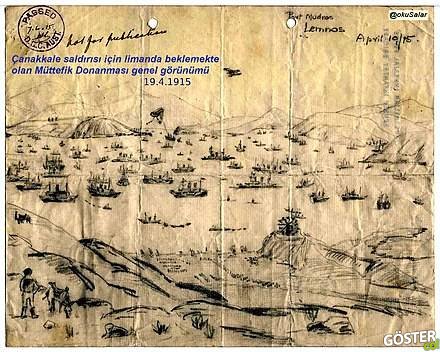 PASSED
7.6.15
D.A.C. AUST.
not for publication
@okuSalar
Port Mudros
Lemnos
April 19/15.
Çanakkale saldırısı için limanda beklemekte
olan Müttefik Donanması genel görünümü
19.4.1915
GÖSTER